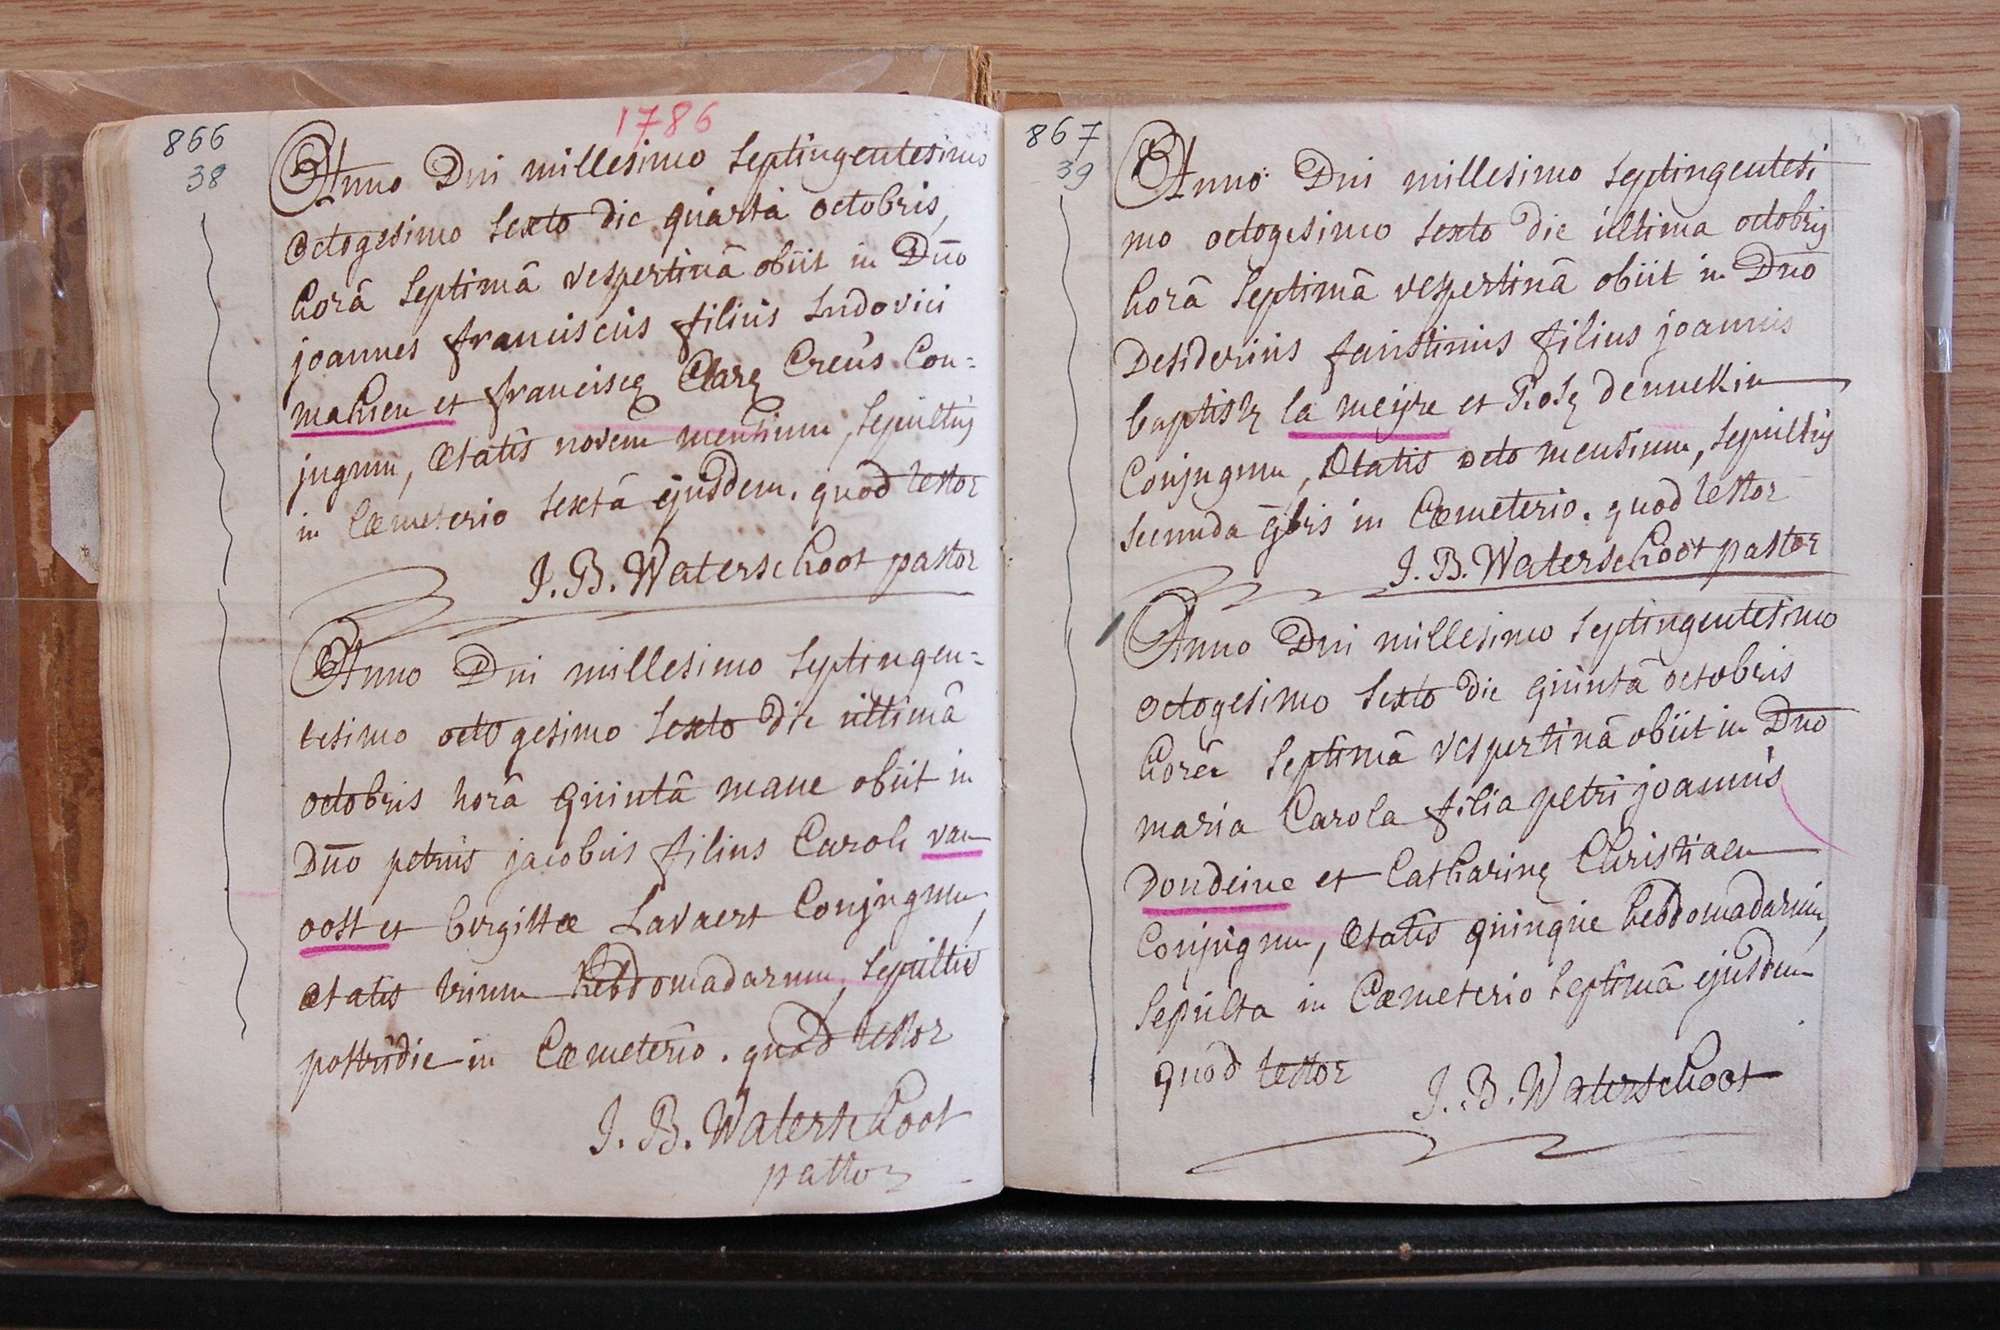 1786
866
38
Anno Dni millesimo Septingentesimo
octogesimo sexto die quartâ octobris,
horâ septimâ vespertinâ obiit in Dno
joannes franciscus filius Ludovici
mahieu et franciscę Clarę Creus Con-
jugum, ætatis novem mensium, sepultus
in Cæmeterio sextâ ejusdem. quod testor
J. B. Waterschoot pastor
Anno Dni millesimo septingen-
tesimo octogesimo sexto die ultimâ
octobris horâ quintâ mane obiit in
Dno petrus jacobus filius Caroli van
oost et birgittæ Lavaert Conjugum
ætatis trium hebdomadarum, sepultus
postridie in Cæmeterio. quod testor
J. B. Waterschoot
pastor
867
39
Anno Dni millesimo septingentesi
mo octogesimo sexto die ultima octobris
horâ septimâ vespertinâ obiit in Dno
Desiderius faustinus filius joannis
baptistę la meyre et Rosę dennekin
Conjugum, ætatis octo mensium, sepultus
secunda 9bris in Cæmeterio. quod testor
J. B. Waterschoot pastor
Anno Dni millesimo septingentesimo
octogesimo sexto die quintâ octobris
horâ septimâ vespertinâ obiit in Dno
maria Carola filia petri joannis
Dondeine et Catharinę Christiaen
Conjugum, ætatis quinque hebdomadarum,
sepulta in Cæmeterio septimâ ejusdem
quod testor
J. B. Waterschoot